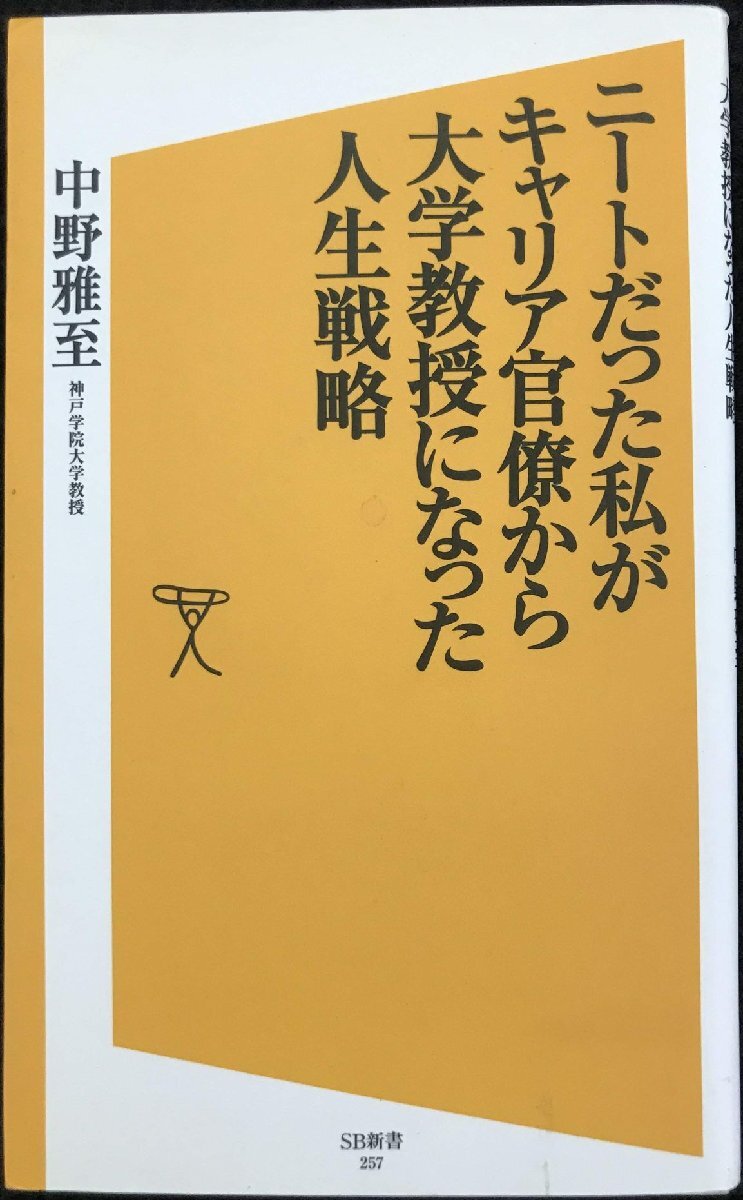 ニートだった私が
キャリア官僚から
大学教授になった
人生戦略
中野雅至
神戸学院大学教授
SB新書
257